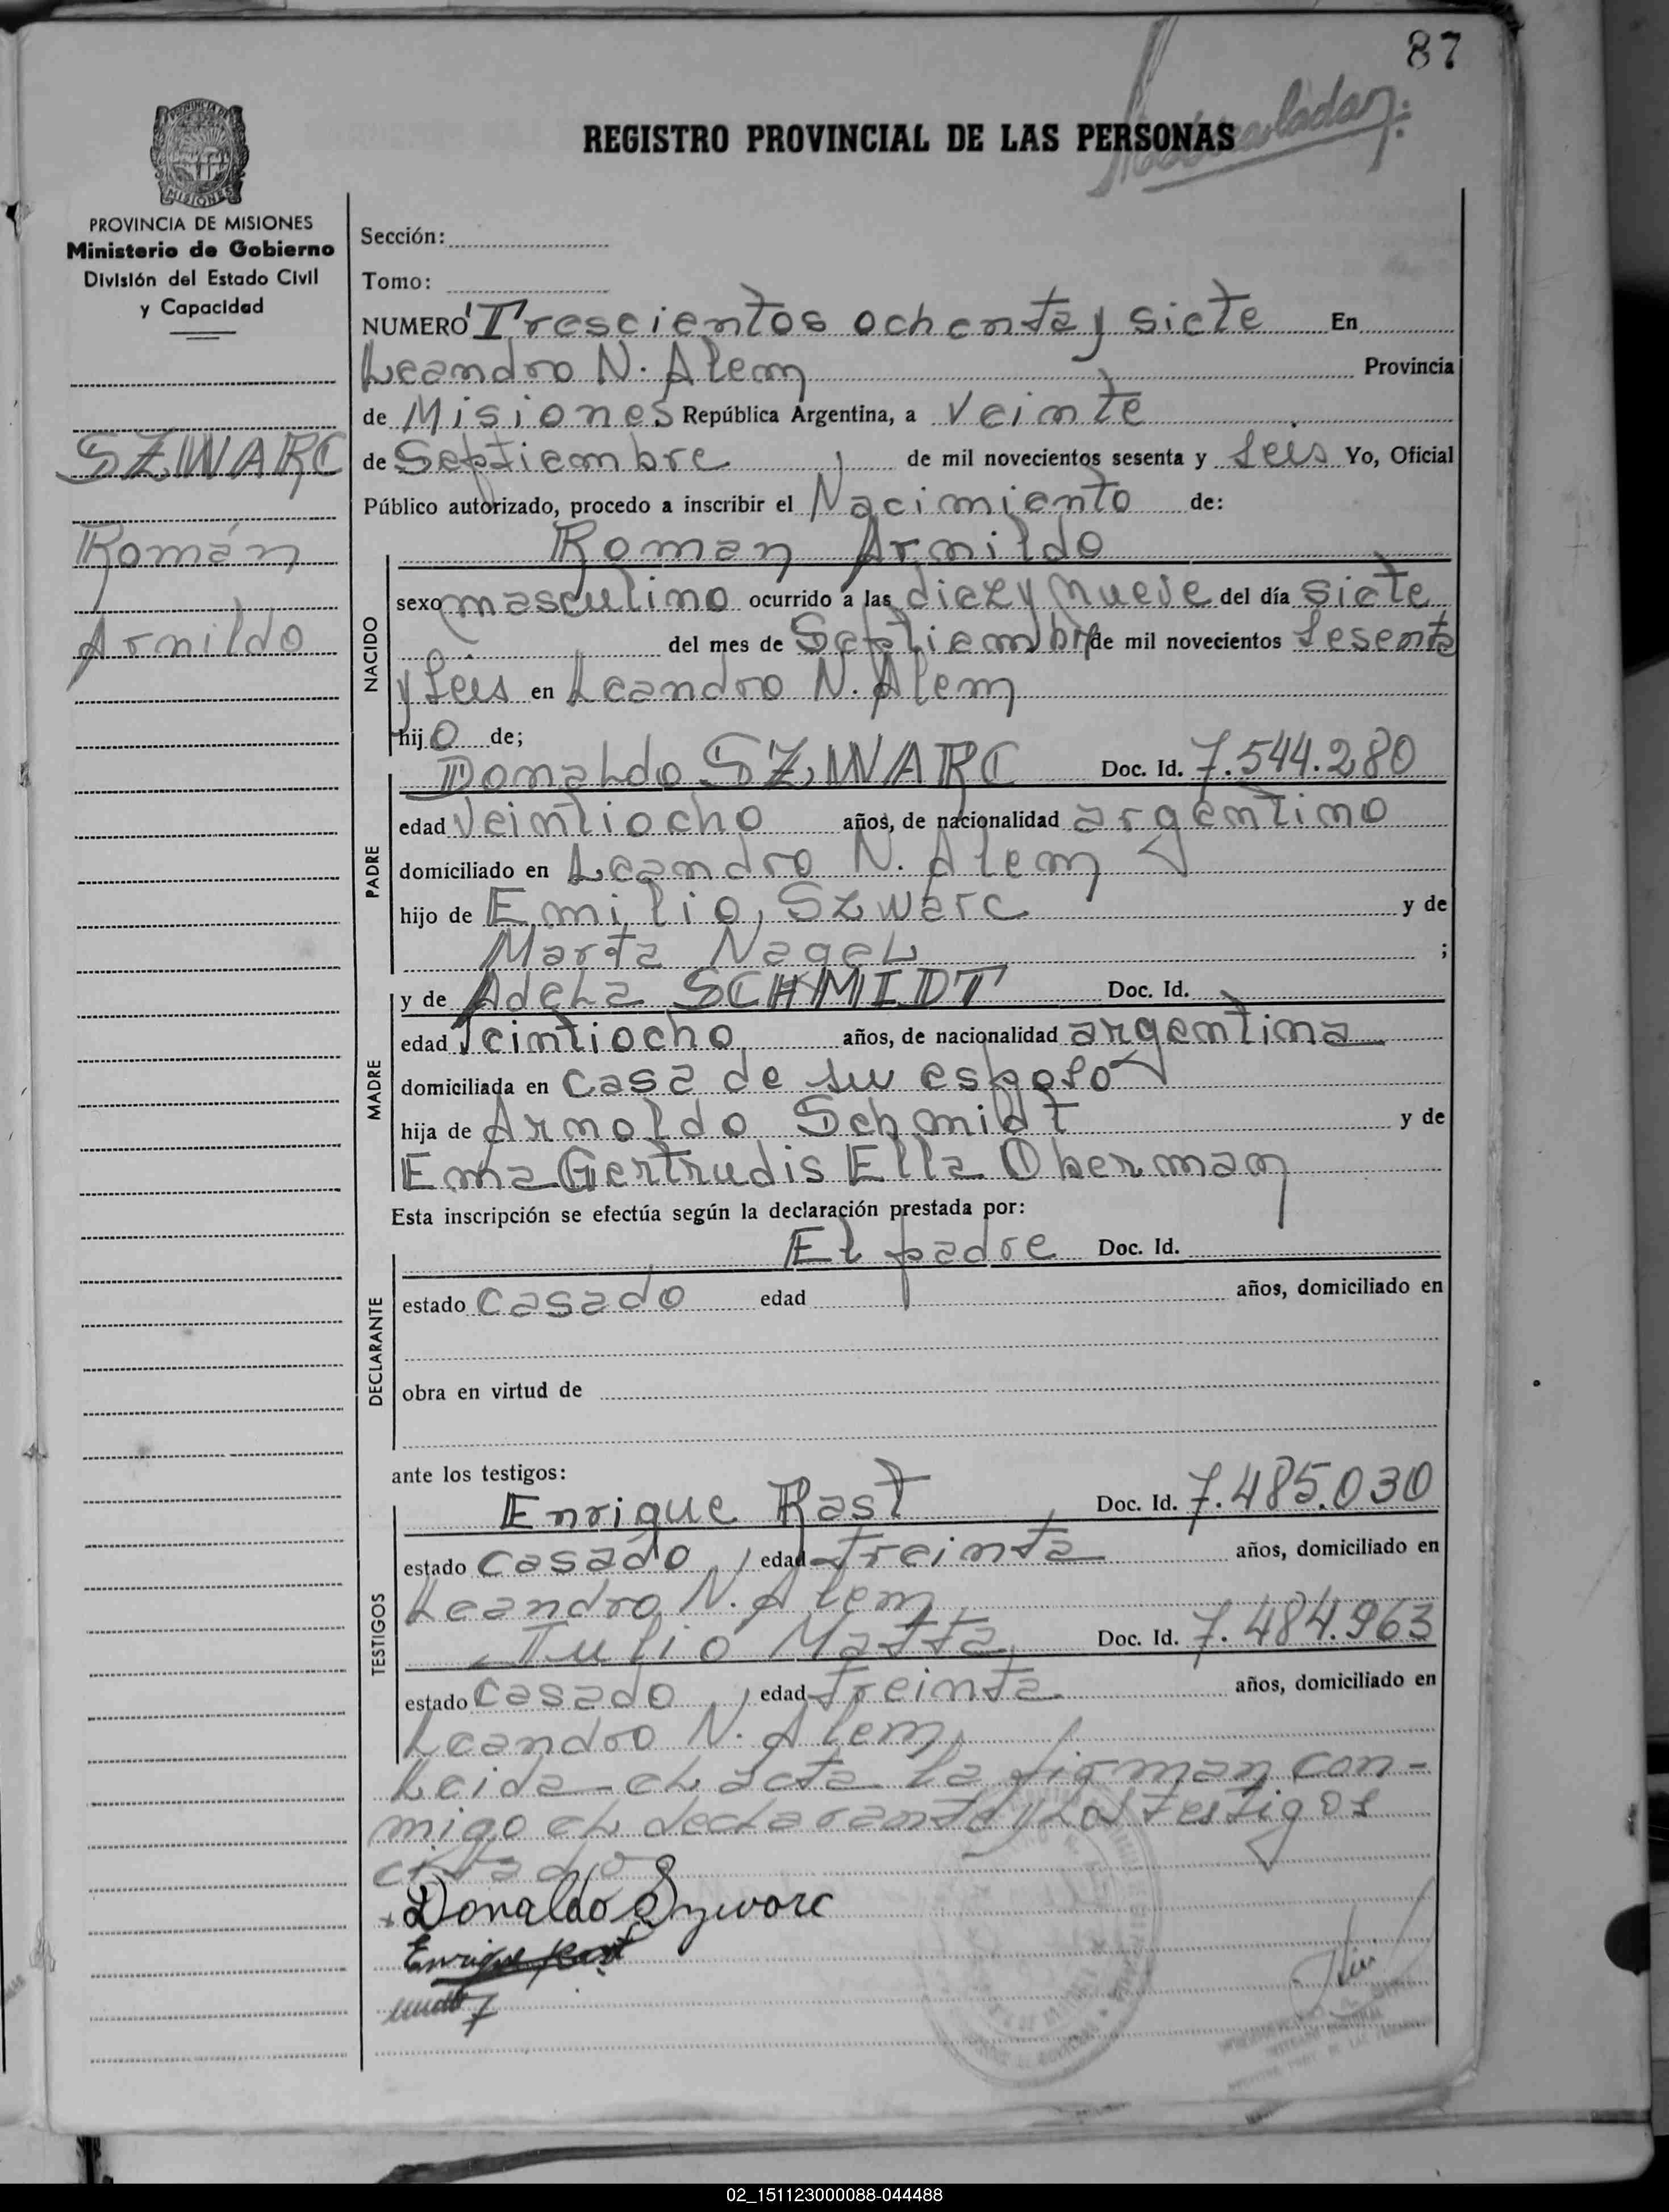 87
REGISTRO PROVINCIAL DE LAS PERSONAS
PROVINCIA DE MISIONES
Ministerio de Gobierno
División del Estado Civil
y Capacidad
SZWARC
Román
Arnildo
Sección:
Tomo:
NUMERO Trescientos ochenta y siete En
Leandro N. Alem Provincia
de Misiones República Argentina, a veinte
de Septiembre de mil novecientos sesenta y seis Yo, Oficial
Público autorizado, procedo a inscribir el Nacimiento de:
Roman Arnildo
NACIDO
sexo masculino ocurrido a las diez y nueve del día siete
del mes de Septiembre de mil novecientos sesenta
y seis en Leandro N. Alem
hijo de;
Donaldo SZWARC Doc. Id. 7.544.280
PADRE
edad veintiocho años, de nacionalidad argentino
domiciliado en Leandro N. Alem
hijo de Emilio Szwarc y de
Marta Nagel ;
y de Adela SCHMIDT Doc. Id.
MADRE
edad veintiocho años, de nacionalidad argentina
domiciliada en casa de su esposo
hija de Arnoldo Schmidt y de
Ema Gertrudis Ella Oberman
Esta inscripción se efectúa según la declaración prestada por:
El padre Doc. Id.
DECLARANTE
estado casado edad años, domiciliado en
obra en virtud de
ante los testigos:
Enrique Rast Doc. Id. 7.485.030
TESTIGOS
estado casado, edad treinta años, domiciliado en
Leandro N. Alem
Julio Matta Doc. Id. 7.484.963
estado casado, edad treinta años, domiciliado en
Leandro N. Alem
Leida el acta la firman con-
migo el declarante y los testigos
citado
Donaldo Szwarc
Enrique Rast
02_151123000088-044488